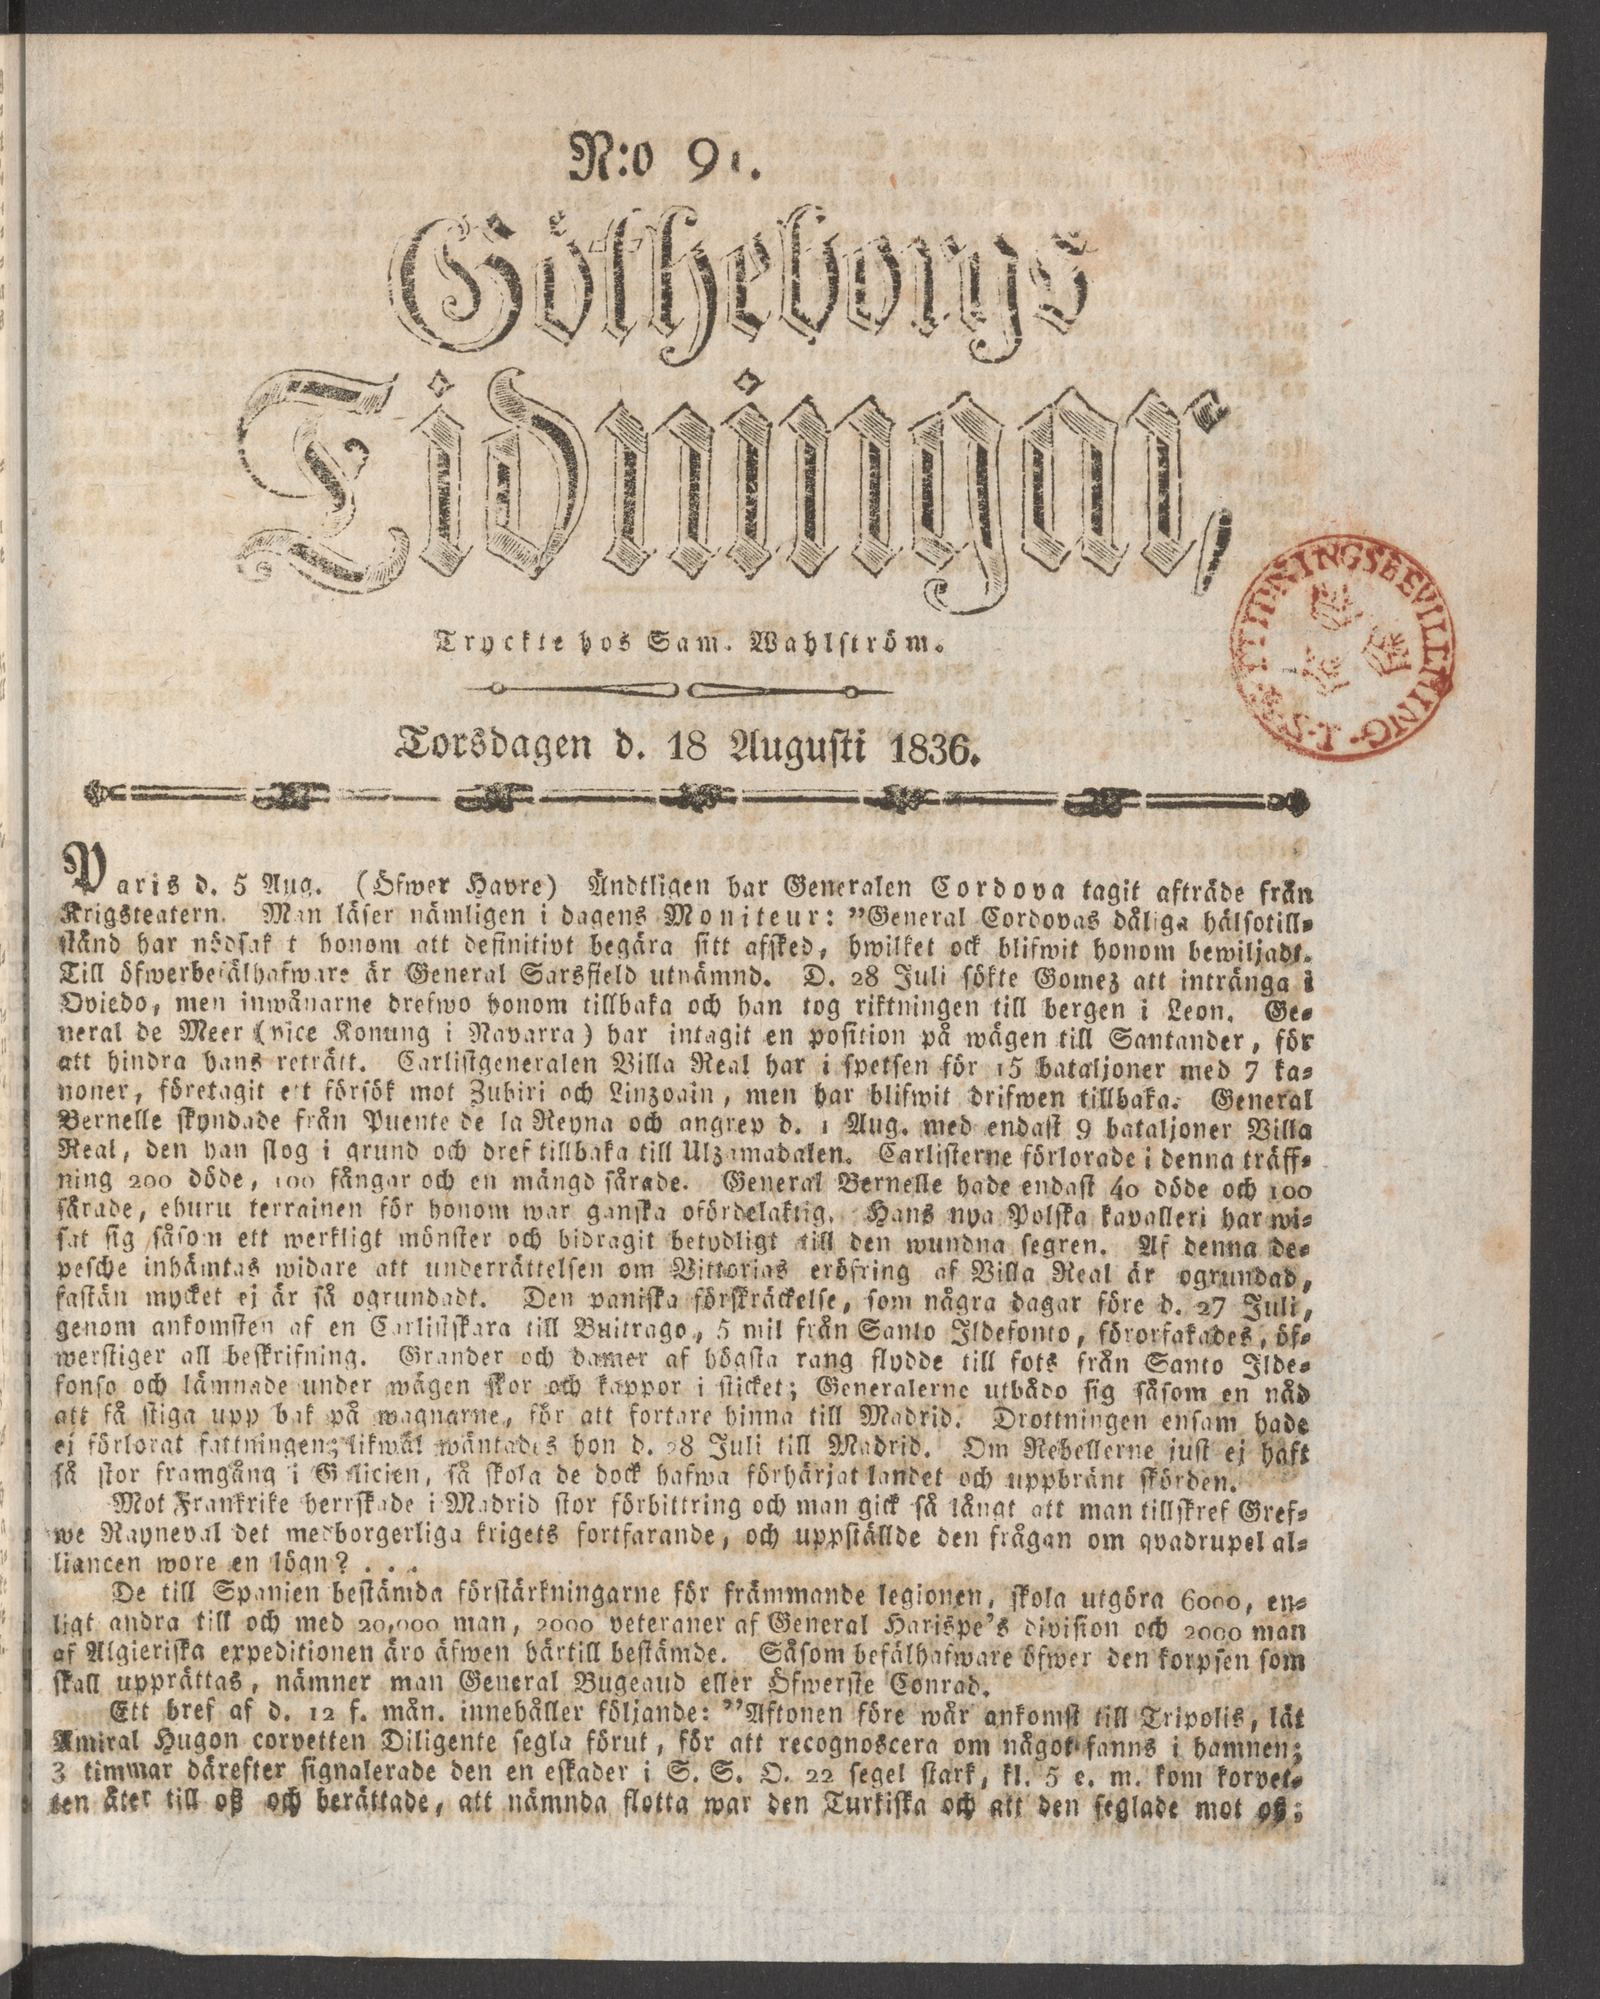 N:o 91.
Götheborgs
Tidningar,
TIDNINGSBEVILLNING. 1. S.
Tryckte hos Sam. Wahlström.
Torsdagen d. 18 Augusti 1836.
Paris d. 5 Aug. (Öfwer Havre) Ändtligen har Generalen Cordova tagit afträde från
Krigsteatern. Man läser nämligen i dagens Moniteur: "General Cordovas dåliga hälsotill-
stånd har nödsakat honom att definitivt begära sitt afsked, hwilket ock blifwit honom bewiljadt.
Till öfwerbefälhafware är General Sarsfield utnämnd. D. 28 Juli sökte Gomez att intränga i
Oviedo, men inwånarne drefwo honom tillbaka och han tog riktningen till bergen i Leon. Ge-
neral de Meer (vice Konung i Navarra) har intagit en position på wägen till Santander, för
att hindra hans reträtt. Carlistgeneralen Villa Real har i spetsen för 15 bataljoner med 7 ka-
noner, företagit ett försök mot Zubiri och Linzoain, men har blifwit drifwen tillbaka. General
Bernelle skyndade från Puente de la Reyna och angrep d. 1 Aug. med endast 9 bataljoner Villa
Real, den han slog i grund och dref tillbaka till Ulzamadalen. Carlisterne förlorade i denna träff-
ning 200 döde, 100 fångar och en mängd sårade. General Bernelle hade endast 40 döde och 100
sårade, ehuru terrainen för honom war ganska ofördelaktig. Hans nya Polska kavalleri har wi-
sat sig såsom ett werkligt mönster och bidragit betydligt till den wundna segren. Af denna de-
pesche inhämtas widare att underrättelsen om Vittorias eröfring af Villa Real är ogrundad,
fastän mycket ej är så ogrundadt. Den paniska förskräckelse, som några dagar före d. 27 Juli,
genom ankomsten af en Carlistskara till Buitrago, 5 mil från Santo Ildefonto, förorsakades, öf-
werstiger all beskrifning. Grander och damer af högsta rang flydde till fots från Santo Ilde-
fonso och lämnade under wägen skor och kappor i sticket; Generalerne utbådo sig såsom en nåd
att få stiga upp bak på wagnarne, för att fortare hinna till Madrid. Drottningen ensam hade
ej förlorat fattningen; likwäl wäntades hon d. 28 Juli till Madrid. Om Rebellerne just ej haft
så stor framgång i Galicien, så skola de dock hafwa förhärjat landet och uppbränt skörden.
Mot Frankrike herrskade i Madrid stor förbittring och man gick så långt att man tillskref Gref-
we Rayneval det medborgerliga krigets fortfarande, och uppställde den frågan om qvadrupel al-
liancen wore en lögn? . . .
De till Spanien bestämda förstärkningarne för främmande legionen, skola utgöra 6000, en-
ligt andra till och med 20,000 man, 2000 veteraner af General Harispe's division och 2000 man
af Algieriska expeditionen äro äfwen härtill bestämde. Såsom befälhafware öfwer den korpsen som
skall upprättas, nämner man General Bugeaud eller Öfwerste Conrad.
Ett bref af d. 12 f. mån. innehåller följande: "Aftonen före wår ankomst till Tripolis, lät
Amiral Hugon corvetten Diligente segla förut, för att recognoscera om något fanns i hamnen;
3 timmar därefter signalerade den en eskader i S. S. O. 22 segel stark, kl. 5 e. m. kom korvet-
ten åter till oß och berättade, att nämnda flotta war den Turkiska och att den seglade mot oß;